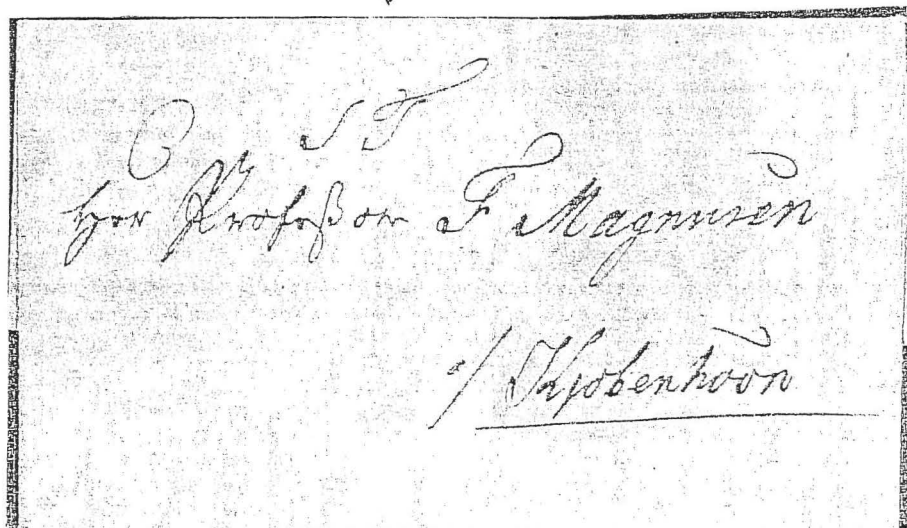 S T
Herr Profeßor F Magnusen
i/ Kjøbenhavn